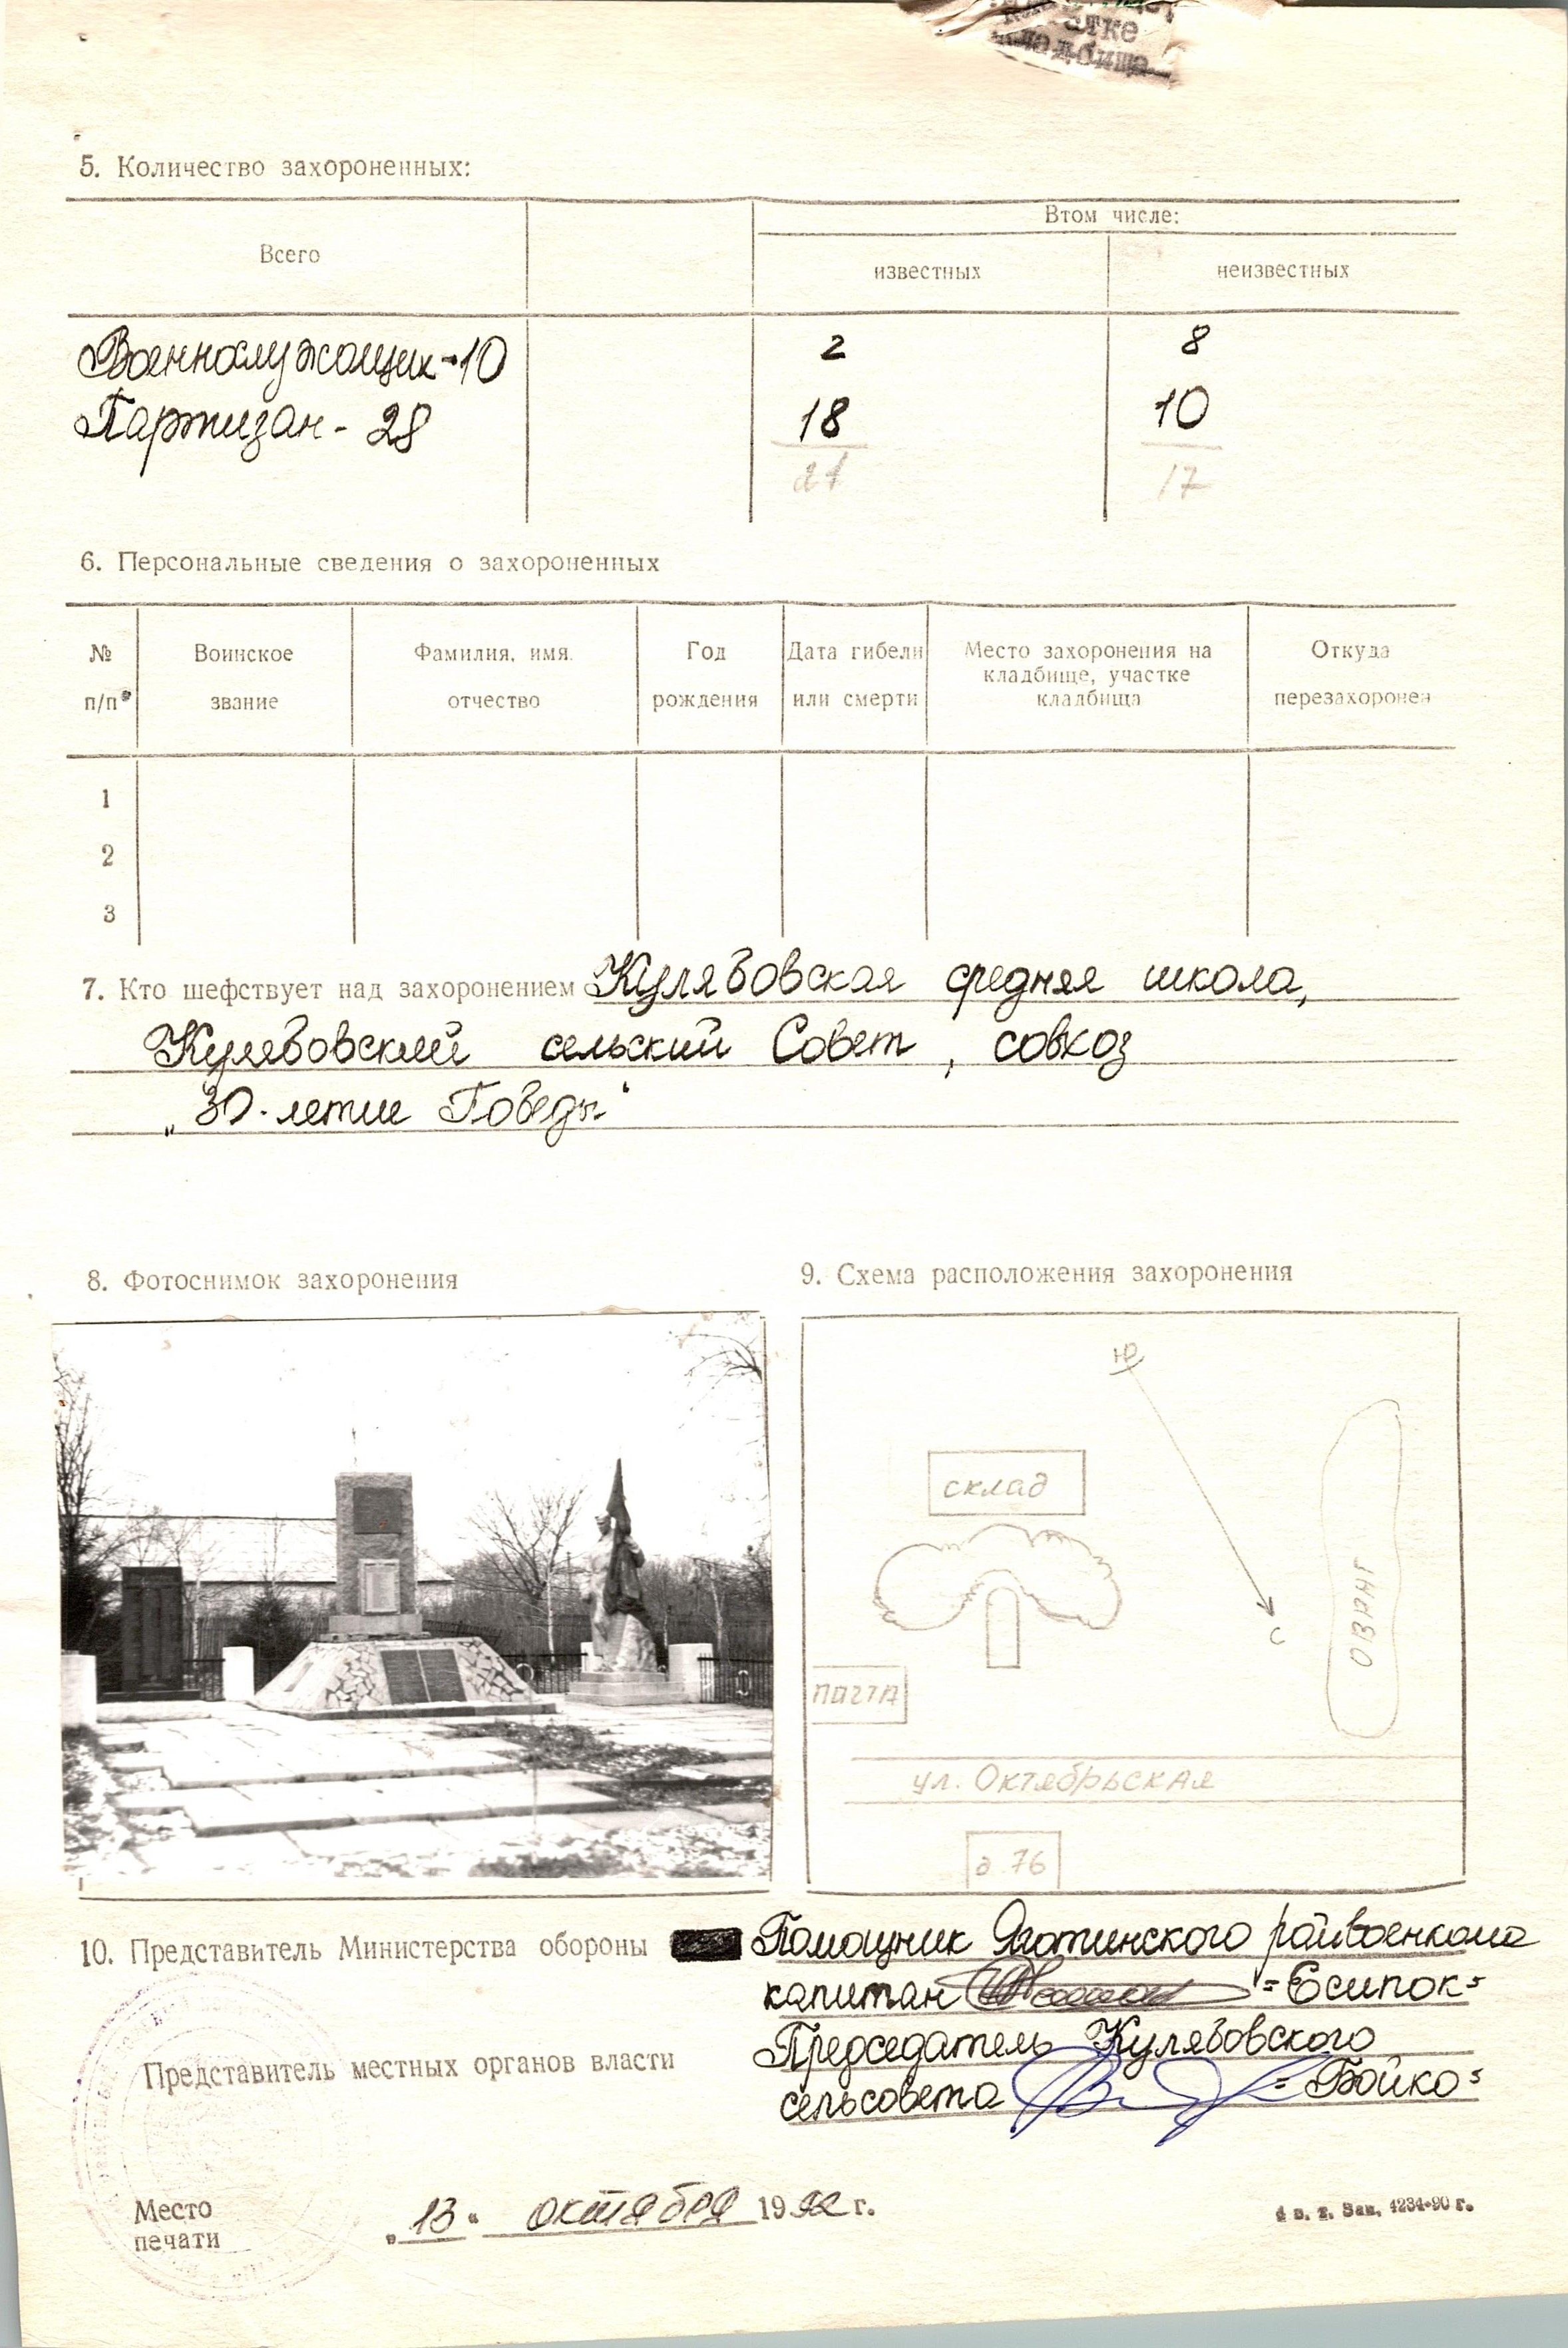 атке
кладбища
5. Количество захороненных:
Всего
Втом числе:
известных
неизвестных
Военнослужащих - 10
2
8
Партизан - 28
18
10
21
17
6. Персональные сведения о захороненных
№ п/п
Воинское звание
Фамилия, имя, отчество
Год рождения
Дата гибели или смерти
Место захоронения на кладбище, участке кладбища
Откуда перезахоронен
1
2
3
7. Кто шефствует над захоронением Кулябовская средняя школа,
Кулябовский сельский Совет, совхоз
„30-летие Победы"
8. Фотоснимок захоронения
9. Схема расположения захоронения
Ю
склад
С
почта
ул. Октябрьская
д 76
10. Представитель Министерства обороны Помощник Яготинского райвоенкома
капитан =Есипок=
Председатель Кулябовского
Представитель местных органов власти
сельсовета =Бойко=
Место
печати
„13" октября 1992 г.
4 в. т. Зак. 4234-90 г.